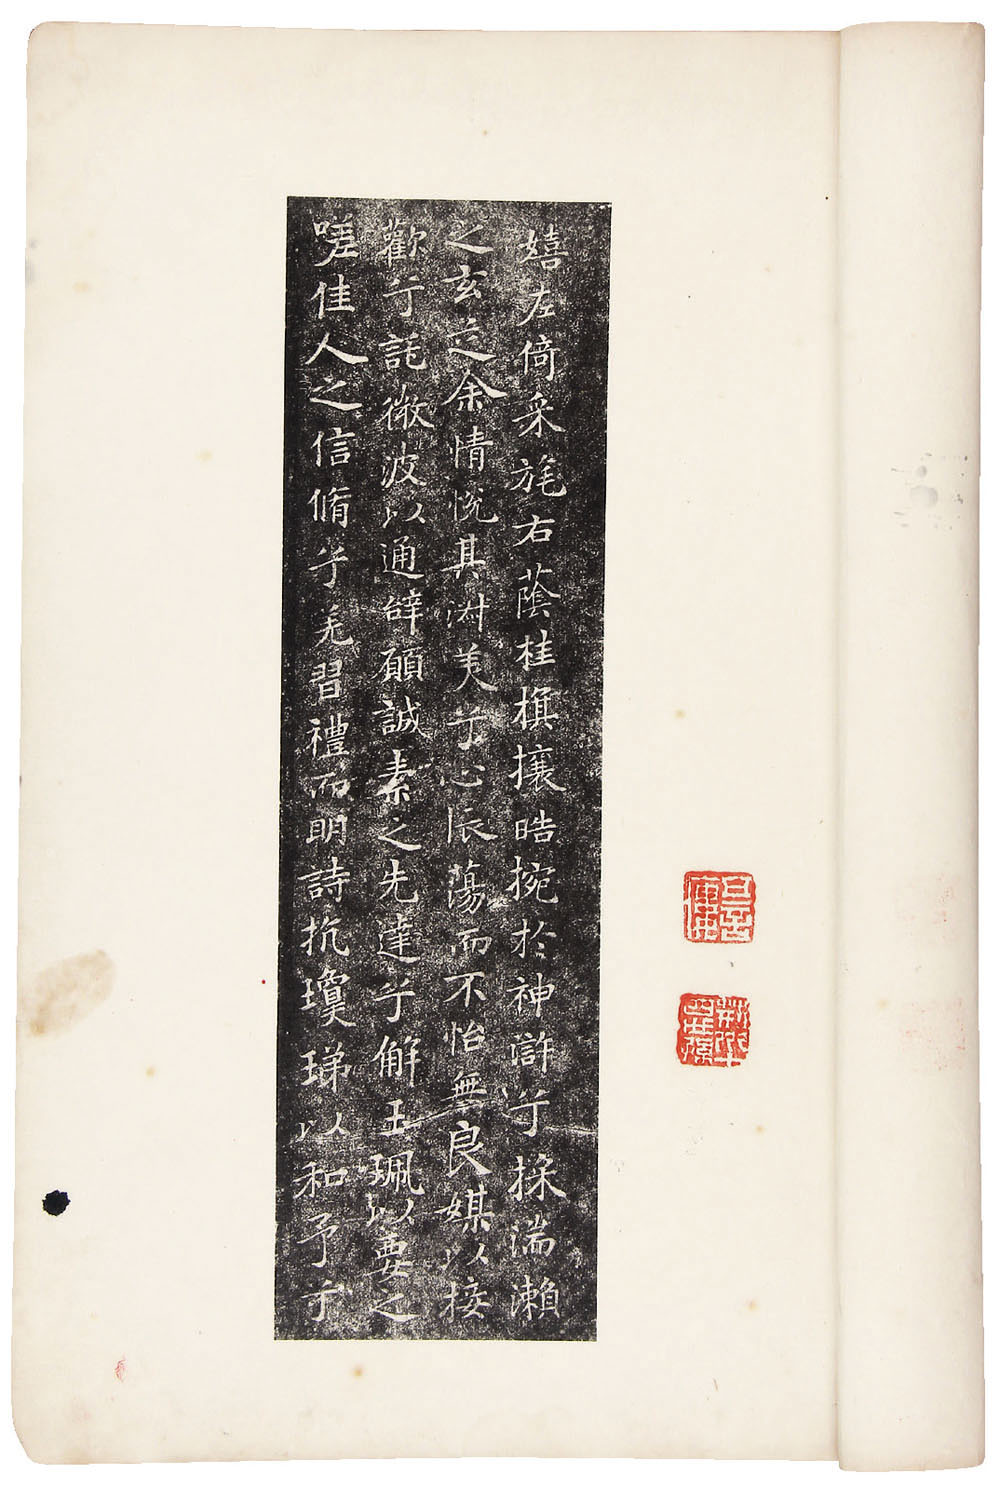 嬉左倚采旄右蔭桂旗攘皓捥於神滸兮採湍瀨
之玄芝余情悅其淋美兮心振蕩而不怡無良媒以接
歡兮託微波以通辭願誠素之先達兮解玉珮以要之
嗟佳人之信脩兮羌習禮而明詩抗瓊珶以和予兮